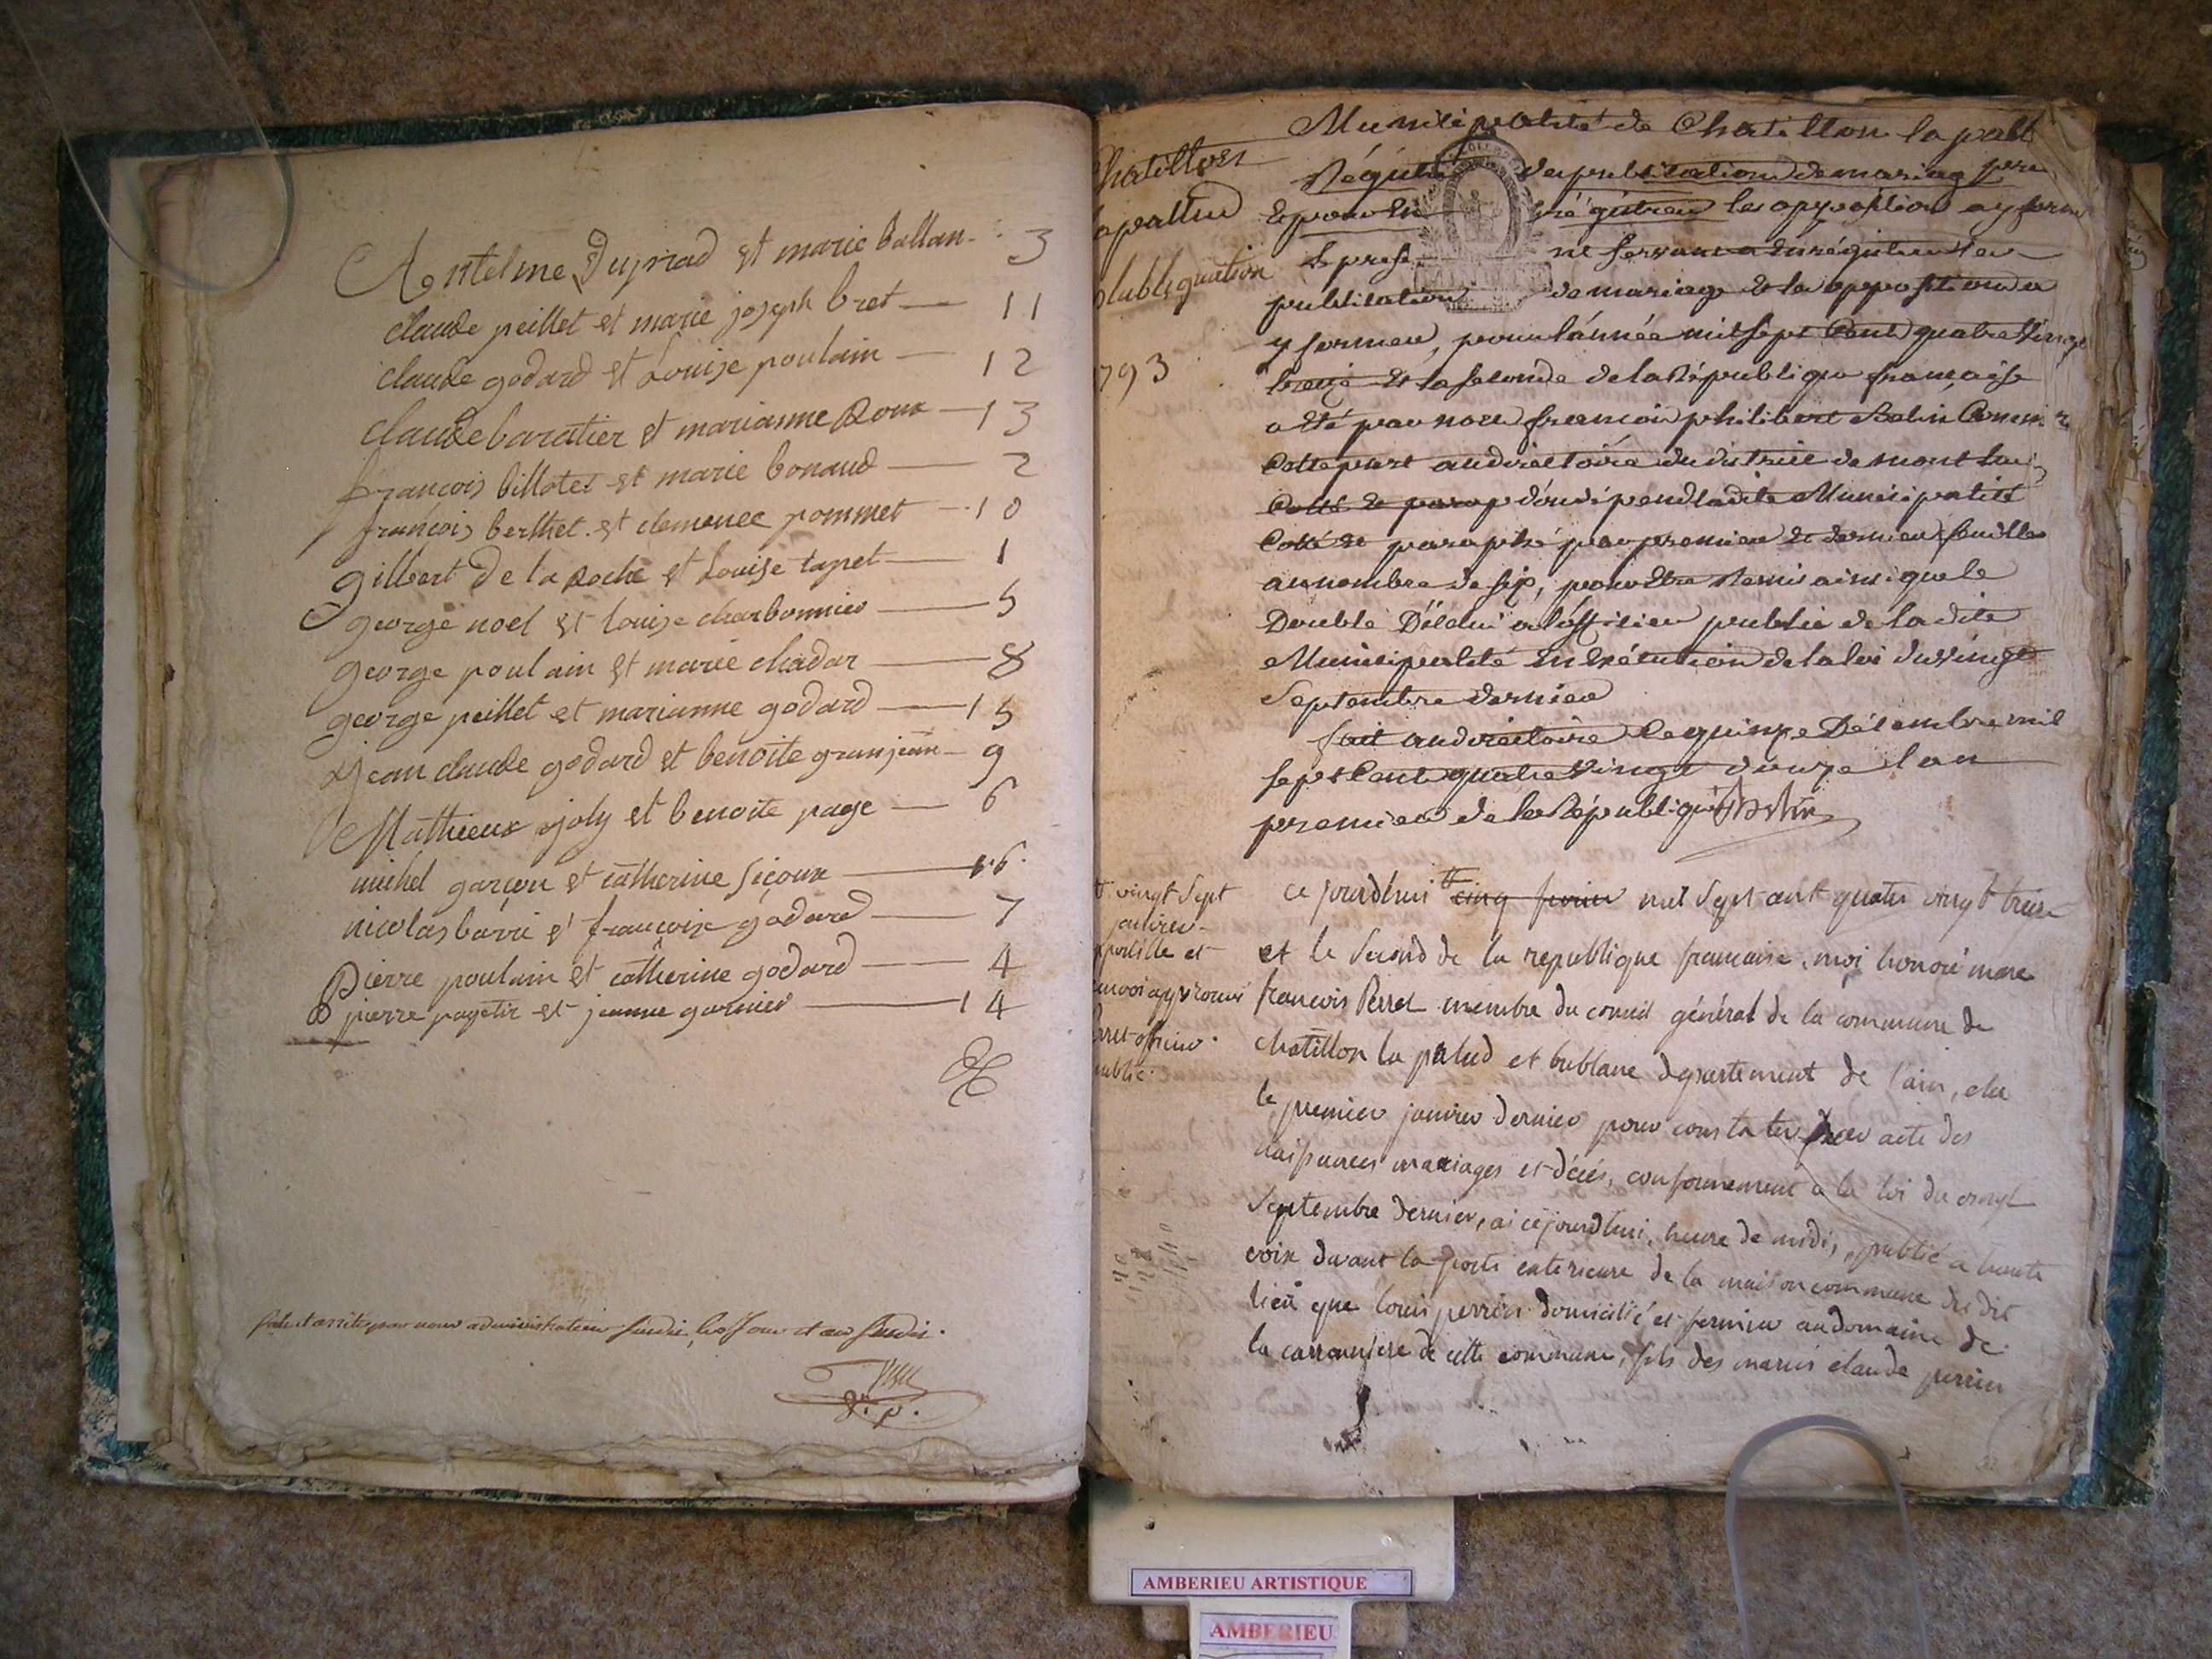 Antelme Dupnad et marie ballan - 3
claude peillet et marie joseph bret — 11
claude godard et Louise poulain — 12
claude baratier et marianne Roux — 13
francois billotet et marie bonaud — 2
francois berthet et clemence pommet — 10
gilbert de la Roche et Louise tapet — 1
george noel et louise charbonnier — 5
george poulain et marie chadar — 8
george peillet et marianne godard — 15
jean claude godard et benoite granjean — 9
Mathieux joly et benoite page — 6
michel garçon et catherine siçoux — 16
nicolas barri et françoise godard — 7
Pierre poulain et catherine godard — 4
pierre pagetir et jeanne garnier — 14
par nous administrateur
Chatillon
lapallud
publication
793
Municipalité de Chatillon la pall
Régistre des publications de mariag
Et pour En régistrer les opposition ay form
Le prese ne servant a Enrégistrer les
publication de mariage Et les oppositions a
y former, pour l'année mil sept Cent quatre Vingt
treize Et la seconde de la République française
a Eté par nous françois philibert
au directoire du district de montlu
Cotté Et parap d'ou dépend ladite Municipalité
Cotté Et paraphé par premier Et dernier feuillet
au nombre de six, pour Etre Remis ainsi que le
Double D'Icelui a l'officier public de la dite
Municipalité En Exécution de la loi du Vingt
Septembre dernier
fait au directoire Ce quinze Décembre mil
sept Cent quatre Vingt douze l'an
premier de la République
vingt sept
janvier
apostille et
renvoi approuvé
perret officier
public
ce jourd'hui cinq fevrier mil sept cent quatre vingt treize
et le second de la republique francaise, moi honoré marc
francois Perret membre du conseil général de la commune de
chatillon la palud et bublane departement de l'ain, elu
le premier janvier dernier pour constater les acte des
naissances mariages et décés, conformement a la loi du vingt
septembre dernier, ai cejourd'hui, heure de midi, publié a haute
voix devant la porte exterieure de la maison commune du dit
lieu que louis perrin domicilié et fermier au domaine de
la carronniere de cette commune, fils des mariés claude perrin
AMBERIEU ARTISTIQUE
AMBERIEU